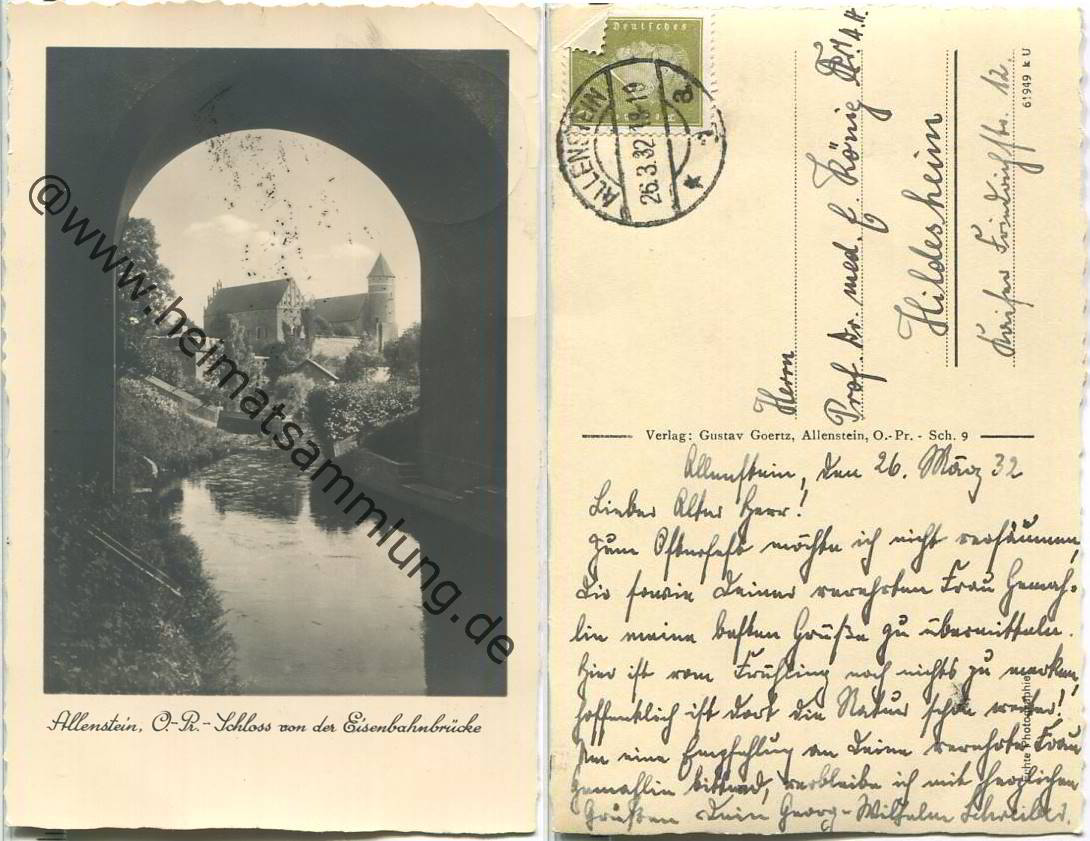 @www.heimatsammlung.de
Allenstein, O.-Pr. - Schloss von der Eisenbahnbrücke
Deutsches
ALLENSTEIN
26.3.32 18-19
a
Herrn
Prof. Dr. med. König
Hildesheim
Kaiser Friedrichstr. 12.
61949 k U
Verlag: Gustav Goertz, Allenstein, O.-Pr. - Sch. 9
Allenstein, den 26. März 32
Lieber Alter Herr!
Zum Osterfeste möchte ich nicht versäumen,
Dir sowie Deiner verehrten Frau Gemah-
lin meine besten Grüße zu übermitteln.
Hier ist vom Frühling noch nichts zu merken,
hoffentlich ist dort die Natur schon weiter!
Um eine Empfehlung an Deine verehrte Frau
Gemahlin bittend, verbleibe ich mit herzlichen
Grüßen Dein Georg-Wilhelm Schreiber.
Echte Photographie